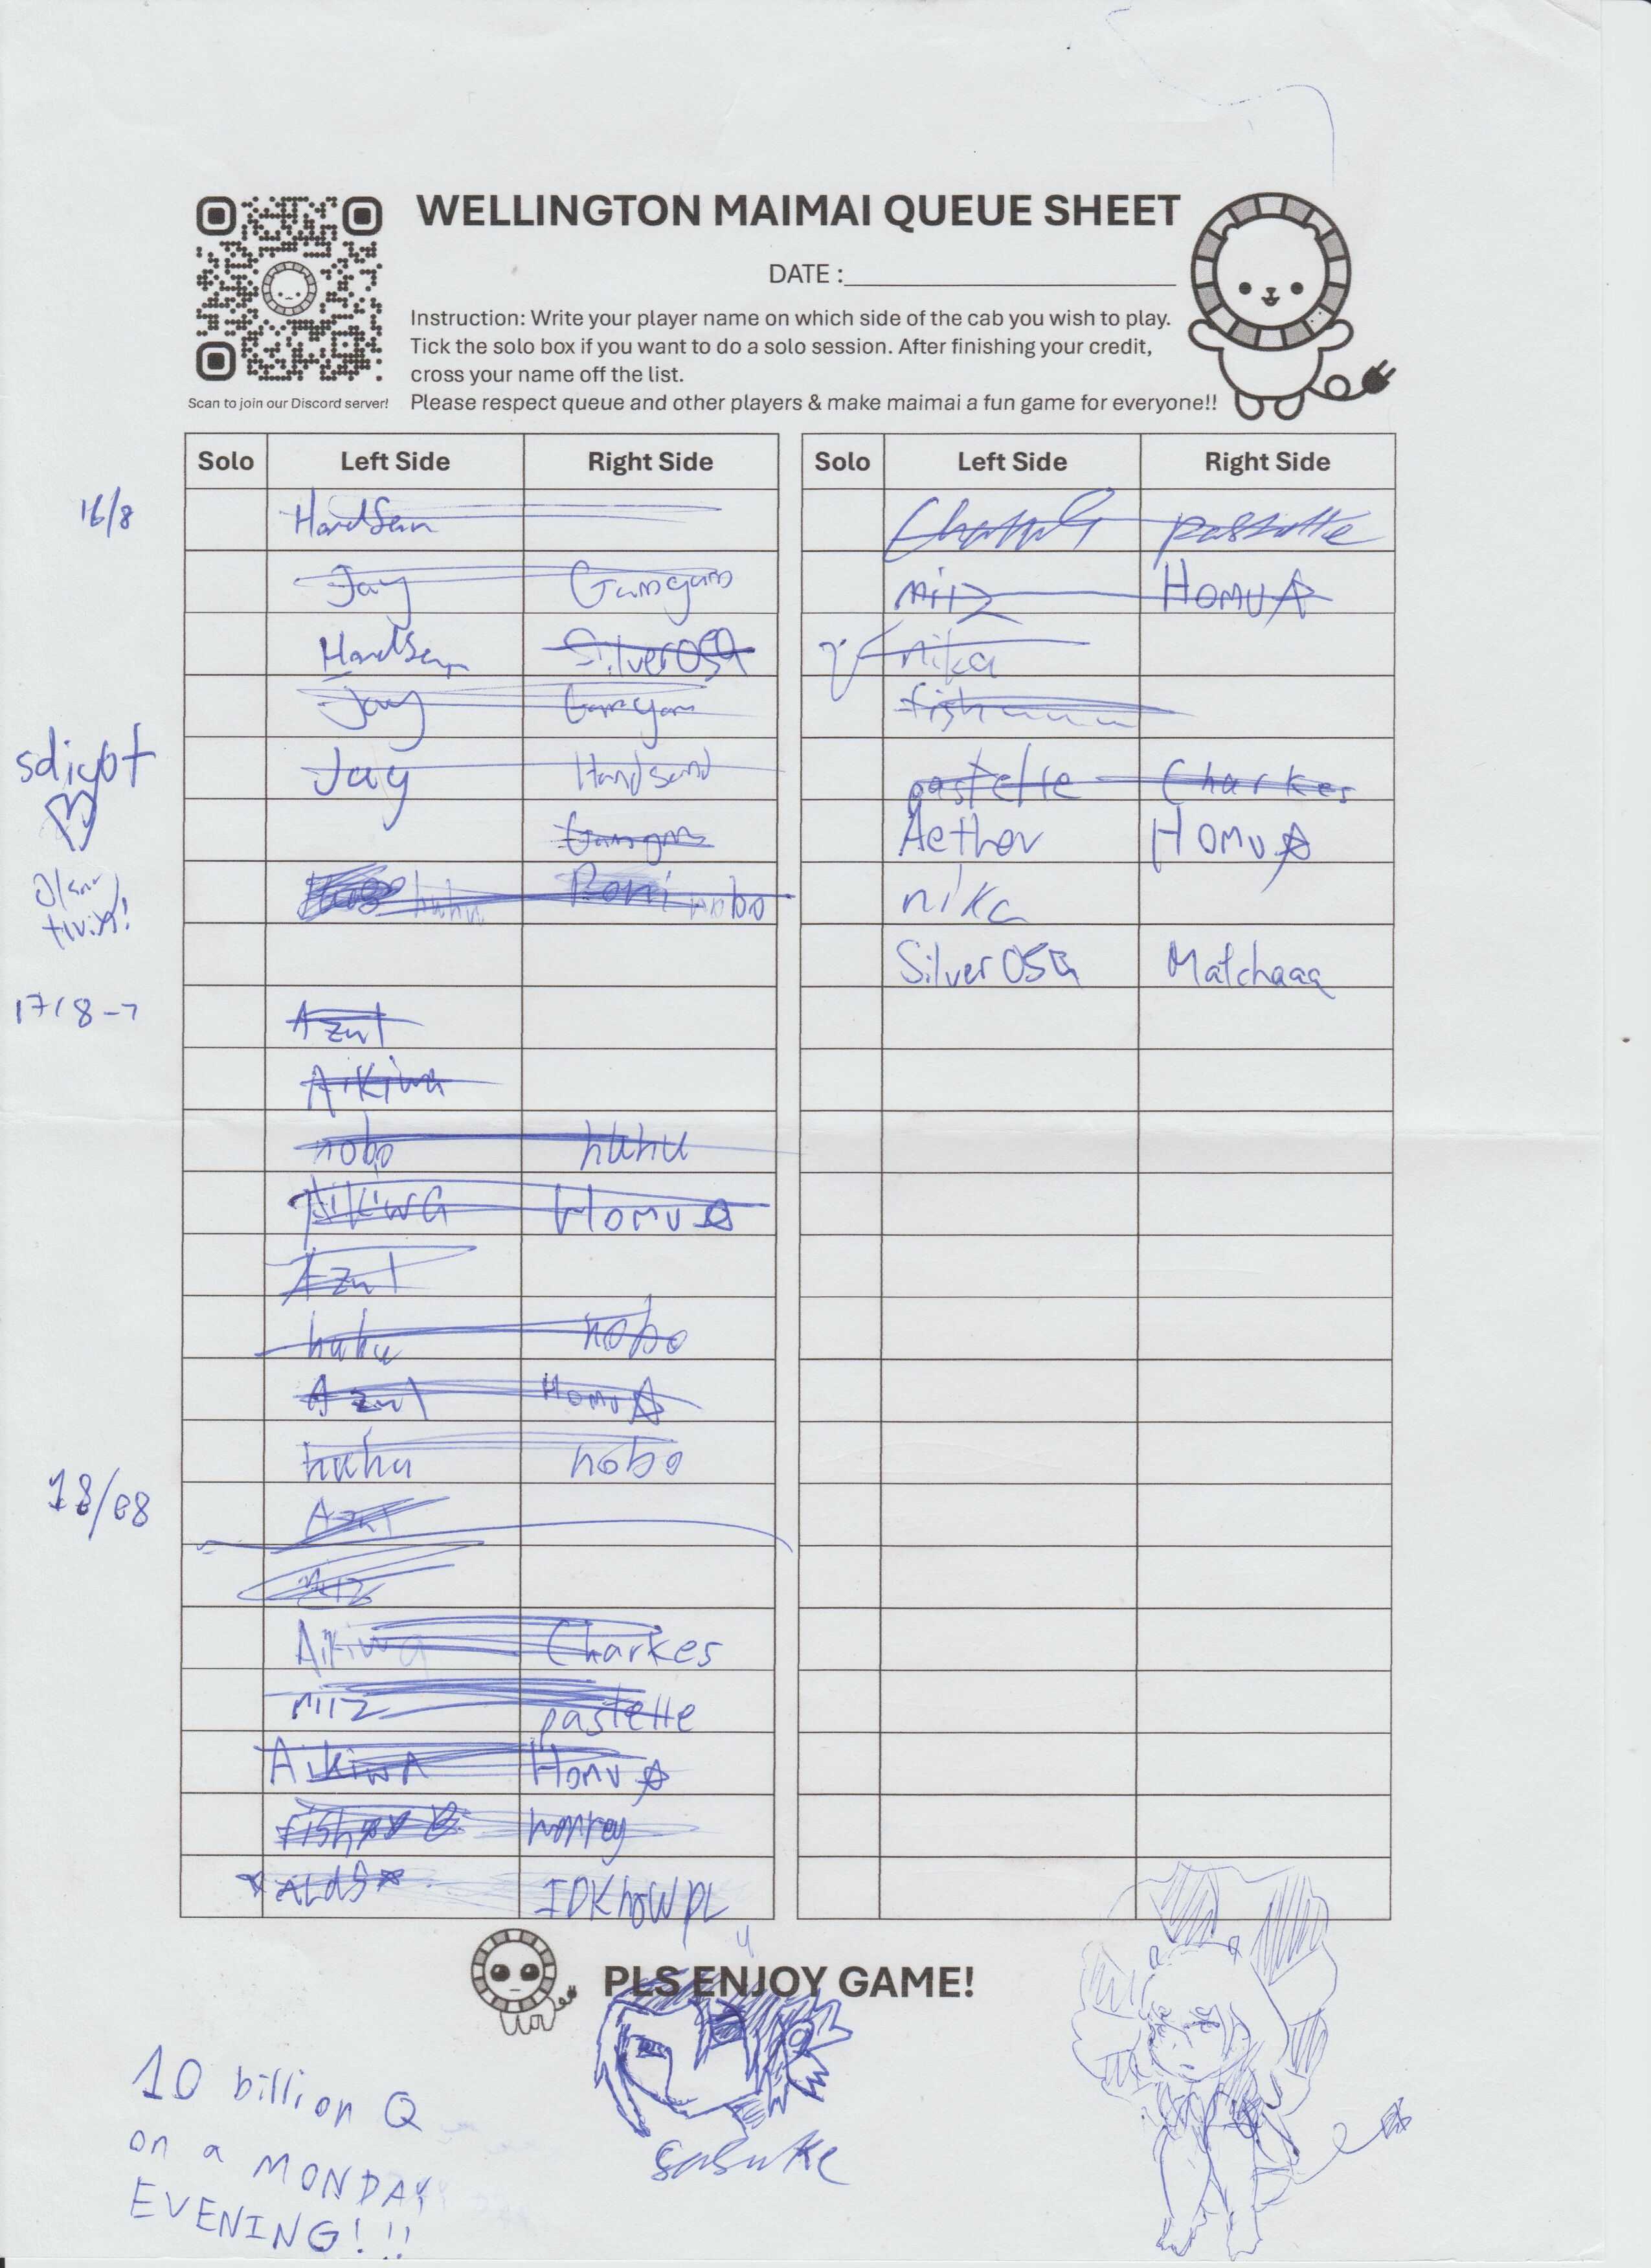 WELLINGTON MAIMAI QUEUE SHEET
DATE :
Instruction: Write your player name on which side of the cab you wish to play.
Tick the solo box if you want to do a solo session. After finishing your credit,
cross your name off the list.
Please respect queue and other players & make maimai a fun game for everyone!!
Scan to join our Discord server!
Solo Left Side Right Side
16/8
HandSan
Jay Gumgum
HandSan Silver05
Jay
Jay Handsand
sdiybt
huhu Boni nobo
17/8
Azul
Aikiwa
nobo huhu
Aikiwa Homu☆
Azul
huhu nobo
Azul Homu☆
huhu nobo
18/08
Azul
miz
Aikiwa Charkes
miiz pastelle
Aikiwa Homu☆
fish
☆ALdS☆ IDKhoWPL
Solo Left Side Right Side
pastelle
miiz Homu☆
nika
fish
pastelle Charkes
Aether Homu☆
nika
Silver05 Matchaaa
PLS ENJOY GAME!
sasuke
10 billion Q
on a MONDAY
EVENING!!!